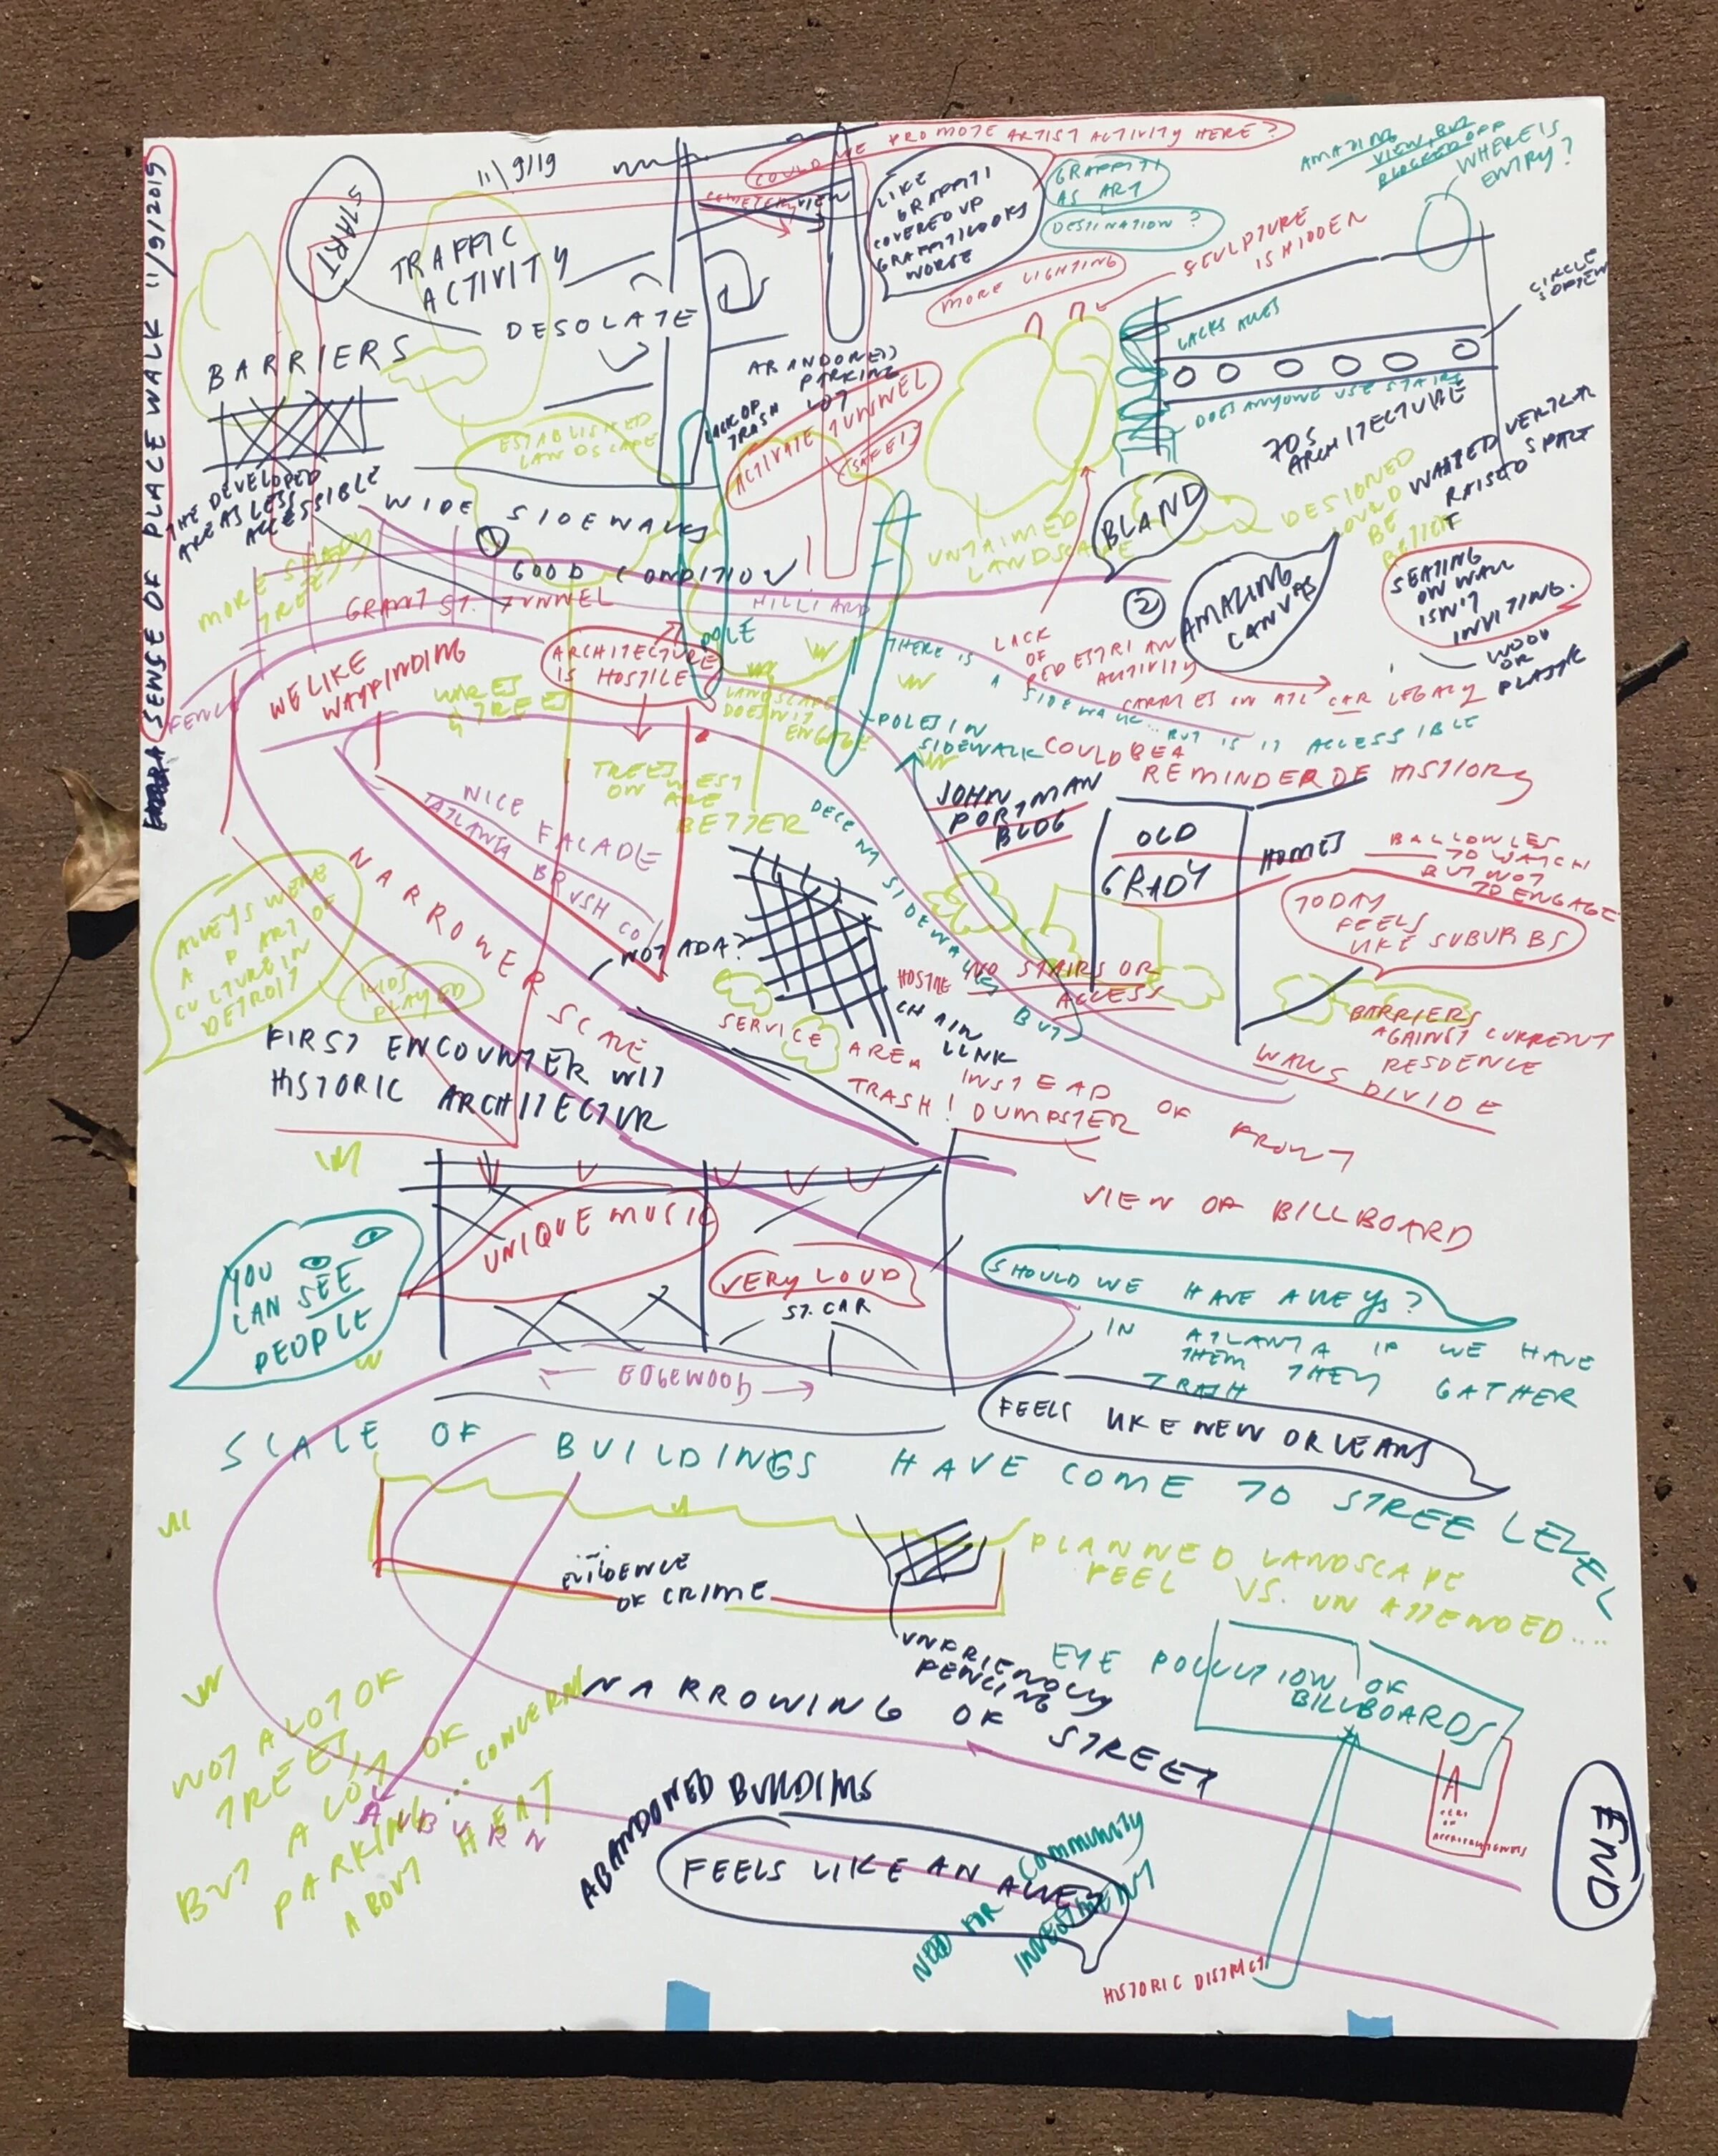 SENSE OF PLACE WALK 11/9/2019
START
11/9/19
COULD WE PROMOTE ARTIST ACTIVITY HERE?
LIKE
GRAFFITI
COVERED UP
GRAFFITI LOOKS
WORSE
GRAFFITI
AS ART
DESTINATION?
AMAZING
VIEW, BUT
BLOCKED OFF
WHERE IS
ENTRY?
SCULPTURE
IS HIDDEN
MORE LIGHTING
CIRCLE
TRAFFIC
ACTIVITY
DESOLATE
BARRIERS
THE DEVELOPED
AREAS LESS
ACCESSIBLE
ESTABLISHED
LANDSCAPE
ABANDONED
PARKING
LOT
LACK OF
TRASH
ACTIVATE TUNNEL
SAFE!
DOES ANYONE USE STAIRS
70S
ARCHITECTURE
WASTED VERTICAL
SPACE
BLAND
UNTAIMED
LANDSCAPE
DESIGNED
COULD
BE
BETTER
WIDE SIDEWALKS
①
GOOD CONDITION!
MORE SHADY
TREES
GRANT ST. TUNNEL
HILLIARD
②
AMAZING
CANVAS
SEATING
ON WALL
ISN'T
INVITING.
WOOD
OR
PLASTIC
FENCE
WE LIKE
WAYFINDING
WIRES
& TREES
ARCHITECTURE
IS HOSTILE
POLE
LANDSCAPE
DOESN'T
ENGAGE
THERE IS
A SIDEWALK... BUT IS IT ACCESSIBLE
LACK
OF
PEDESTRIAN
ACTIVITY
CARRIES ON ATL CAR LEGACY
POLES IN
SIDEWALK
COULD BE A
REMINDER OF HISTORY
TREES
ON WEST
ARE
BETTER
NICE FACADE
ATLANTA BRUSH CO
DECENT SIDEWALKS BUT
JOHN
PORTMAN
BLDG
OLD
GRADY
HOMES
BALCONIES
TO WATCH
BUT NOT
TO ENGAGE
TODAY
FEELS
LIKE SUBURBS
NARROWER SCALE
ALLEYS WERE
A PART OF
CULTURE IN
DETROIT
KIDS
PLAYED
NOT ADA?
HOSTILE
NO STAIRS OR
ACCESS
CHAIN
LINK
SERVICE AREA INSTEAD OF FRONT
TRASH! DUMPSTER
BARRIERS
AGAINST CURRENT
RESDENCE
WALLS DIVIDE
FIRST ENCOUNTER W/
HISTORIC ARCHITECTUR
VIEW OF BILLBOARD
UNIQUE MUSIC
VERY LOUD
ST. CAR
YOU
CAN SEE
PEOPLE
SHOULD WE HAVE ALLEYS?
IN ATLANTA IF WE HAVE
THEM THEY GATHER
TRASH
EDGEWOOD
FEELS LIKE NEW ORLEANS
SCALE OF BUILDINGS HAVE COME TO STREE LEVEL
EVIDENCE
OF CRIME
UNFRIENDLY
FENCING
PLANNED LANDSCAPE
FEEL VS. UNATTENDED....
EYE POLLUTION OF
BILLBOARDS
NARROWING OF STREET
NOT A LOT OF
TREES,
BUT A LOT OF
PARKING... CONCERN
ABOUT HEAT
AUBURN
ABANDONED BUILDIMS
FEELS LIKE AN ALLEY
NEED FOR COMMUNITY
INVESTMENT
HISTORIC DISTRICT
END